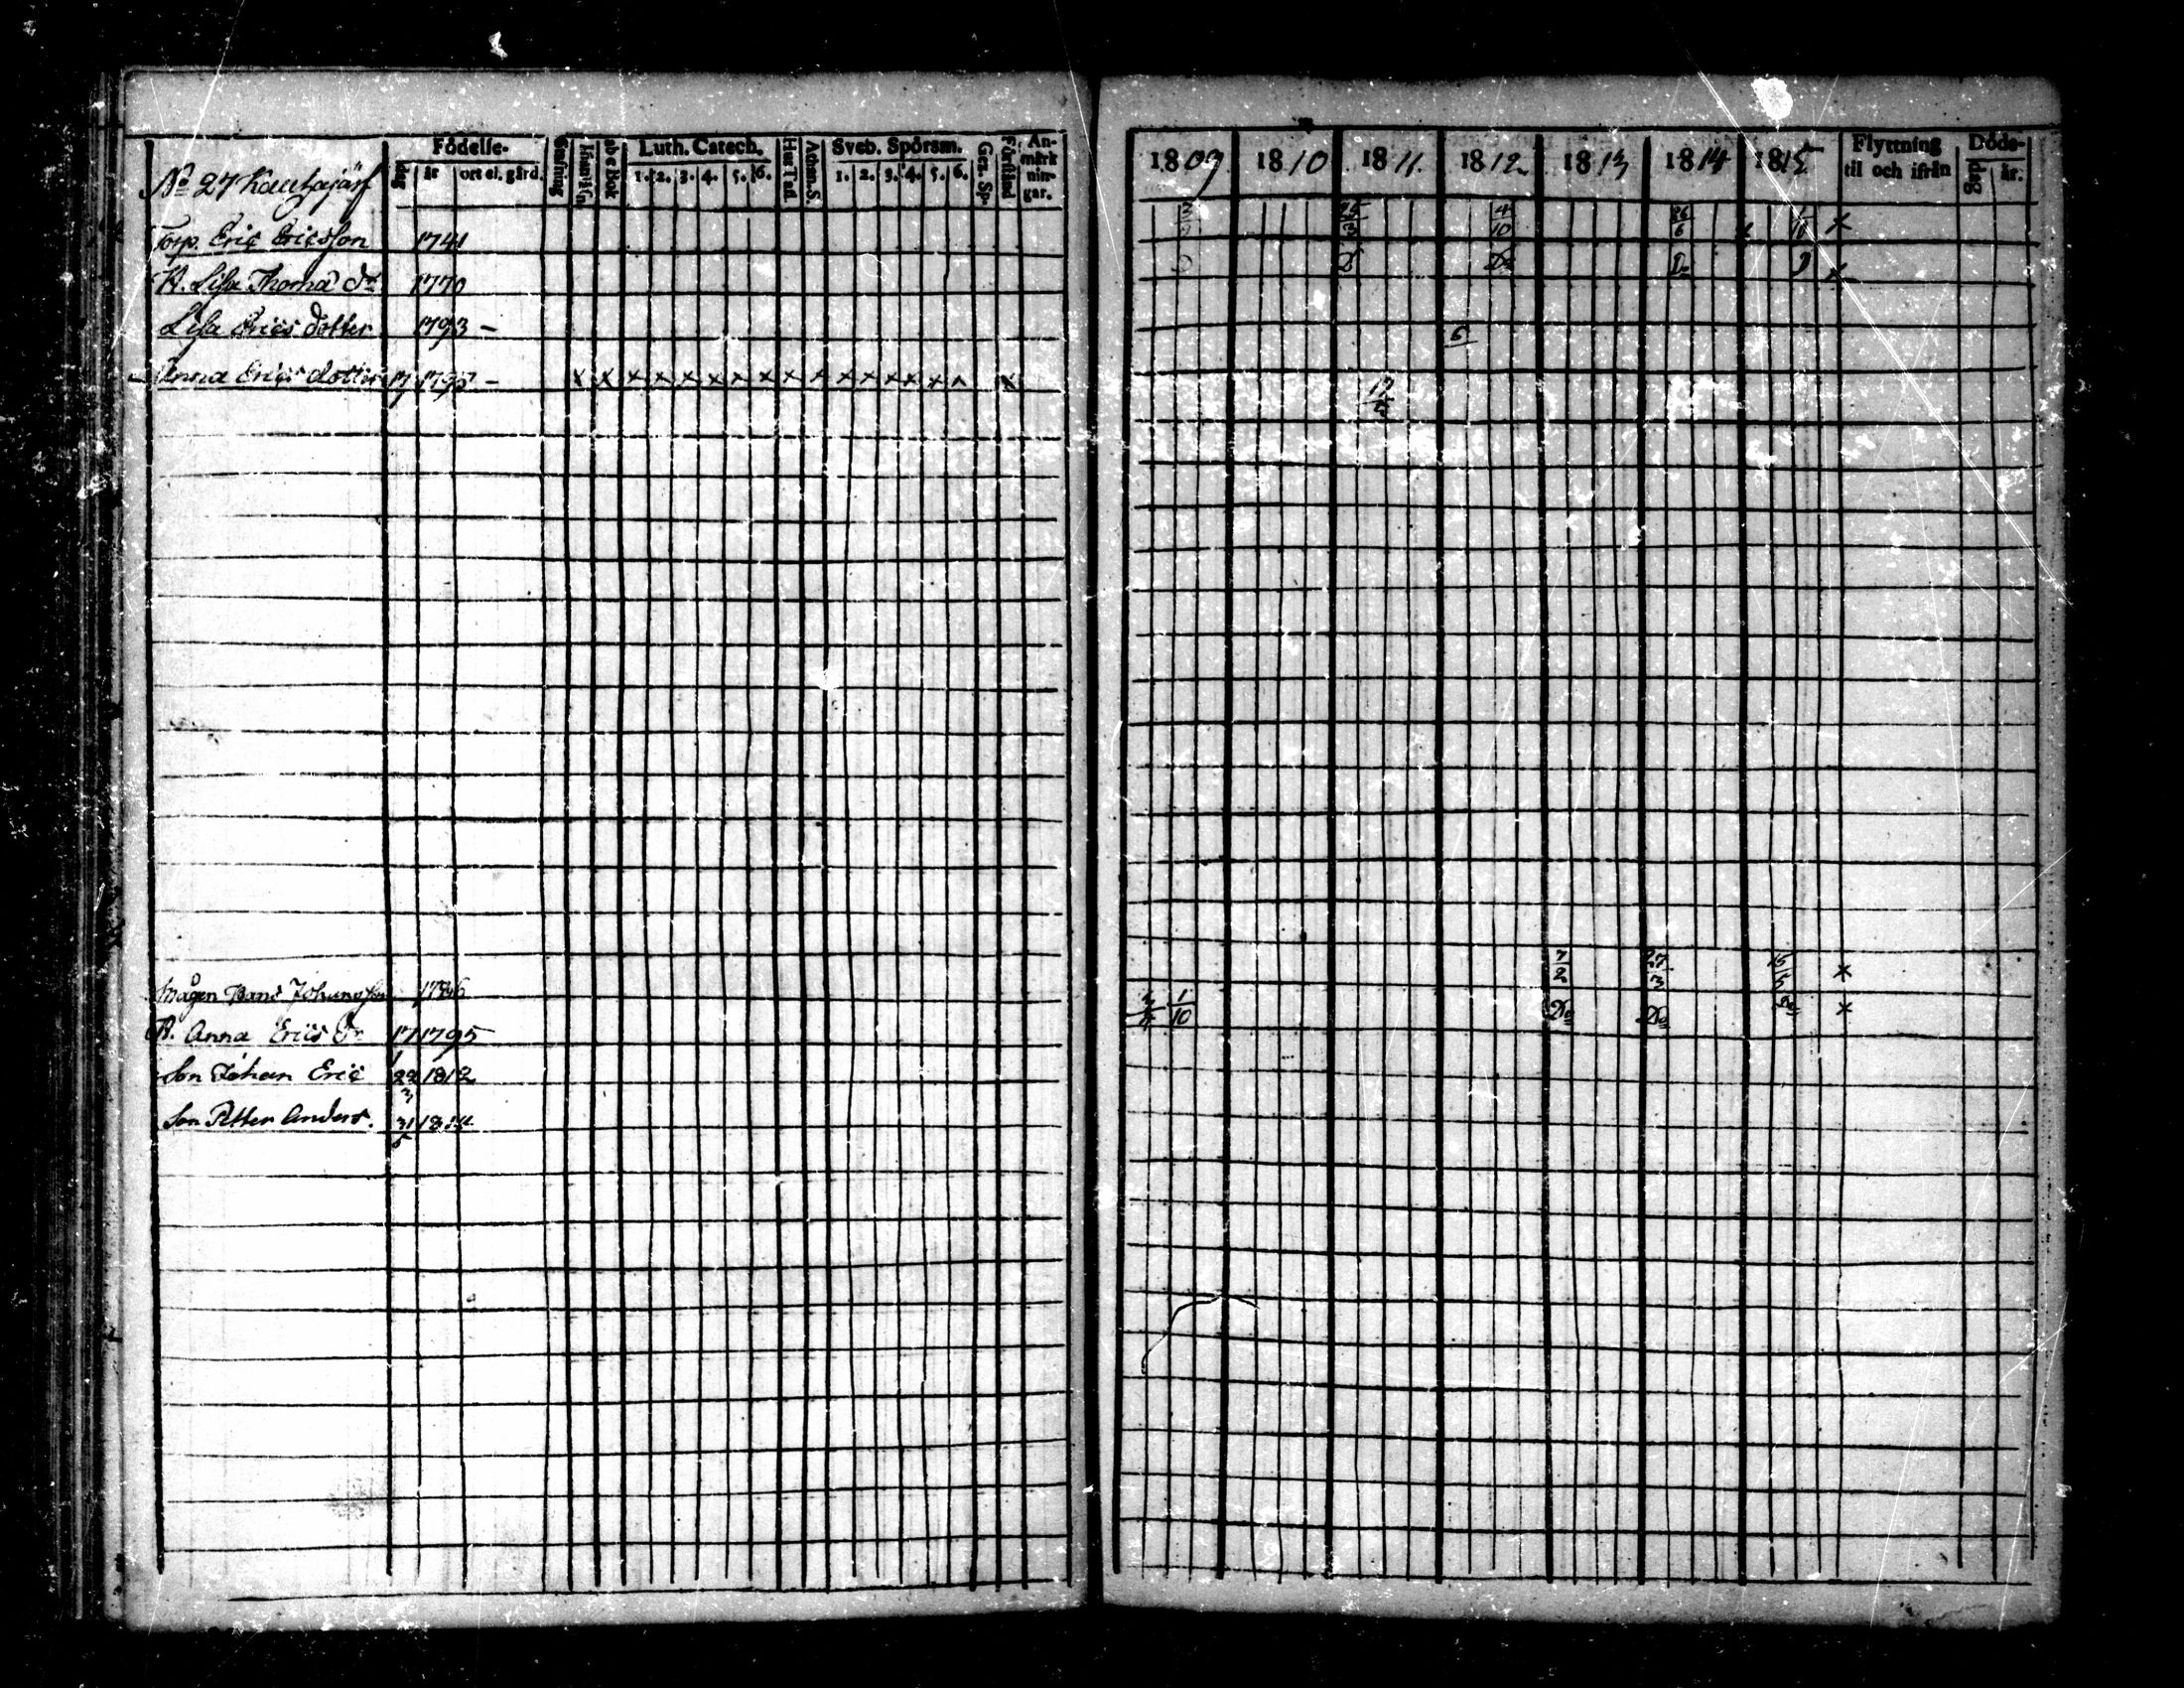 No 27 Kauhajärf
Födelse-
dag år ort el. gård.
Stafning
Innan i Bn
abc Bok
Luth. Catech.
1. 2. 3. 4. 5. 6.
Hus Tafl.
Athan. S.
Sveb. Spörsm.
1. 2. 3. 4. 5. 6.
Gen. Sp.
Förstånd
An-
märk
nin-
gar.
1809 1810 1811. 1812 1813 1814 1815
Flyttning
til och ifrån
Döds-
dag år.
Torp. Eric Ericsson 1741 25/3 4/10 26/6 x
H. Lisa Thomas dr 1770 D Do Do D x
Lisa Erics dotter 1793 - 6
Anna Erics dotter 17 1795 - x x x x x x x x x x x x x x x x x
Mågen Hans Johansson 7/2 27/3 15/5 x
H. Anna Erics Dr 17/1 1795 1/10 Do Do Do x
Son Johan Eric 22/3 1812
Son Petter Anders. 31/5 1814